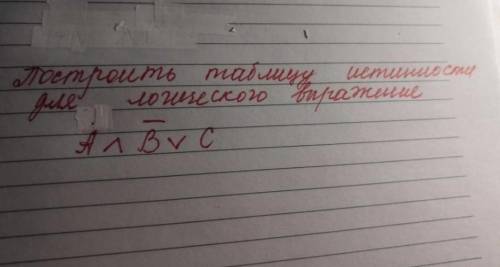 Построить таблицу истинности
для логического выражение
A ∧ B̅ ∨ C